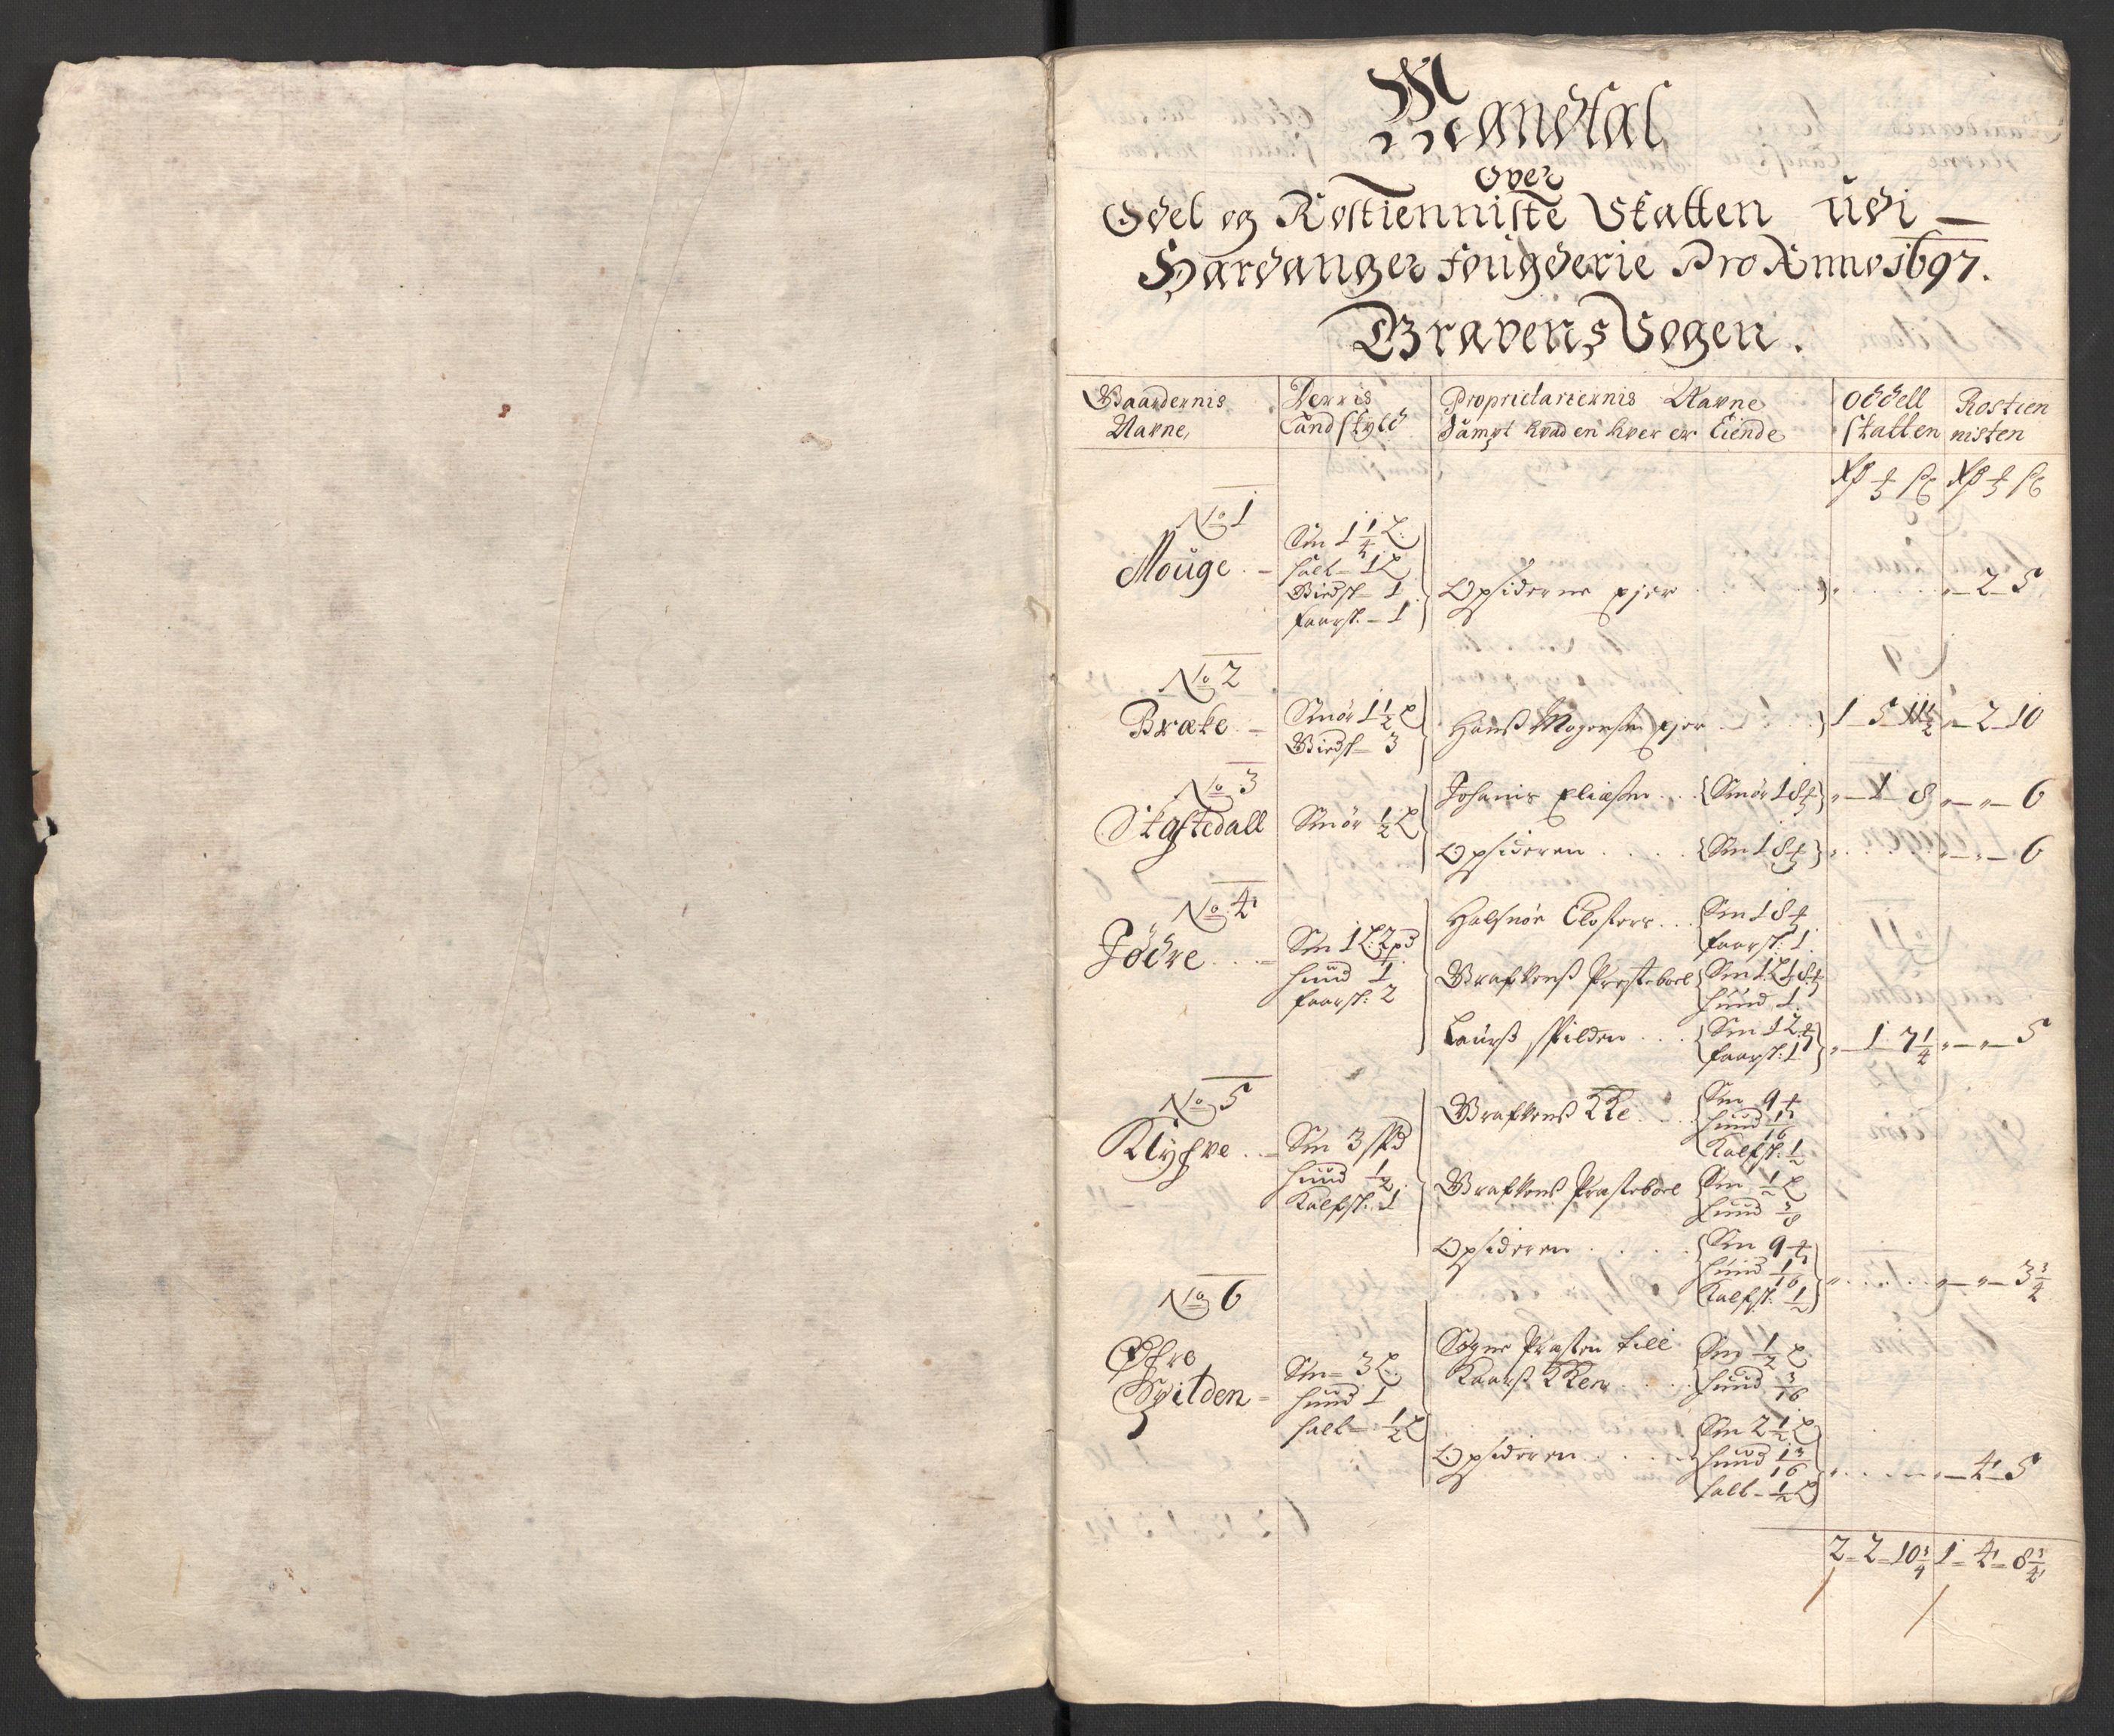 Mandtal
over
Odel og Rostienniste Skatten udi
Hardanger fougderie Pro Anno 1697.
Gravens Sogen.
Gaardernis Nafne, Derris Landskyld Proprietariernis Navne Sampt hvad en hver er Eiende Oddell skatten Rostien nisten
No 1
Mouge Sm 1 1/4 L
salt 1 L
Giedsk 1
faarsk. 1
Opsiderne ejer 2 5
No 2
Bræke Smør 1 1/2 L
Giedsk 3
Hans Mogensen ejer 1 5 11 1/2 2 10
No 3
Skystedall Smør 1/2 L
Johanis Eliæsen Smør 18 1 8 6
Opsideren Sm 18 6
No 4
Jødre Sm 1 L 2 pd
hund 1
faarsk. 2
Halsnøe Closter Sm 18
faarsk. 1
Grafvens Presteboel Sm 1 L 18
hund 1
Laurs spilden Sm 12
faarsk. 1
1 7 1/4 5
No 5
Klyfve Sm 3 spd
hund 1/2
Kalfsk. 1
Grafvens KKe Sm 9
hund 1/16
Kalfsk. 1/2
Grafvens Præsteboel Sm 1/2 L
hund 3/8
Opsideren Sm 9
hund 1/16
Kalfsk. 1/2
3 3/4
No 6
Øfre
Spilden Sm 3 L
hund 1
salt 1/2 L
Sogne Præsten till Sm 1/2 L
KKen hund 3/16
Opsideren Sm 2 1/2 L
hund 13/16
salt 1/2 L
4 5
2 2 10 3/4 1 4 8 3/4